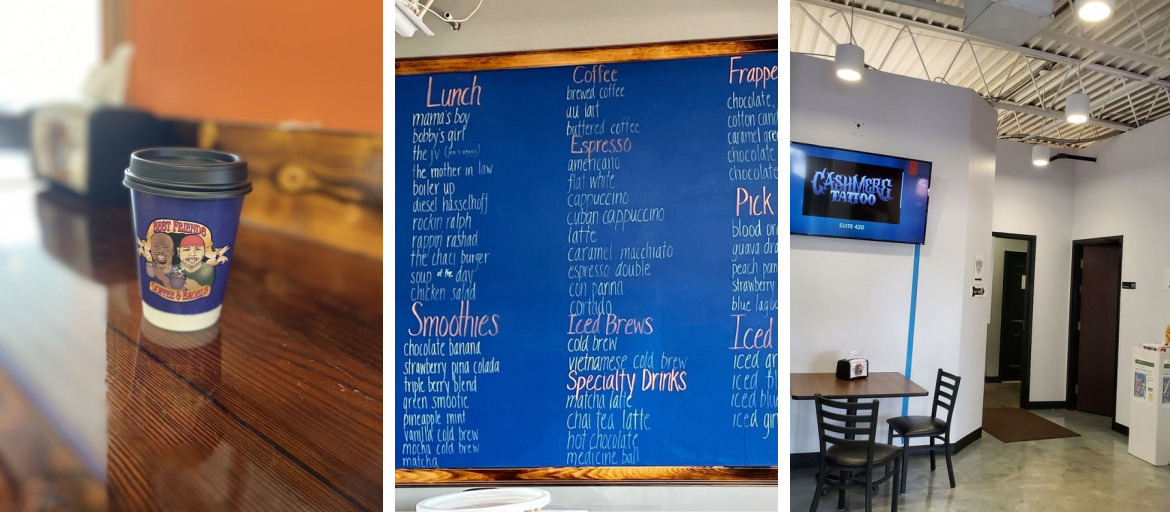 BEST FRIENDS
COFFEE & BAGELS
Lunch
mama's boy
bobby's girl
the jv
the mother in law
boiler up
diesel hasselhoff
rockin ralph
rappin rashad
the chaci burger
soup of the day
chicken salad
Smoothies
chocolate banana
strawberry pina colada
triple berry blend
green smootie
pineapple mint
vanilla cold brew
mocha cold brew
matcha
Coffee
brewed coffee
au lait
buttered coffee
Espresso
americano
flat white
cappuccino
cuban cappuccino
latte
caramel macchiato
espresso double
con panna
cortado
Iced Brews
cold brew
vietnamese cold brew
Specialty Drinks
matcha latte
chai tea latte
hot chocolate
medicine ball
Frappe
chocolate,
cotton cand
caramel
chocolate
chocolate
Pick
blood or
guava dra
peach pom
strawberry
blue lago
Iced
iced gr
iced bl
iced blu
iced gin
CASHMERE
TATTOO
SUITE 420